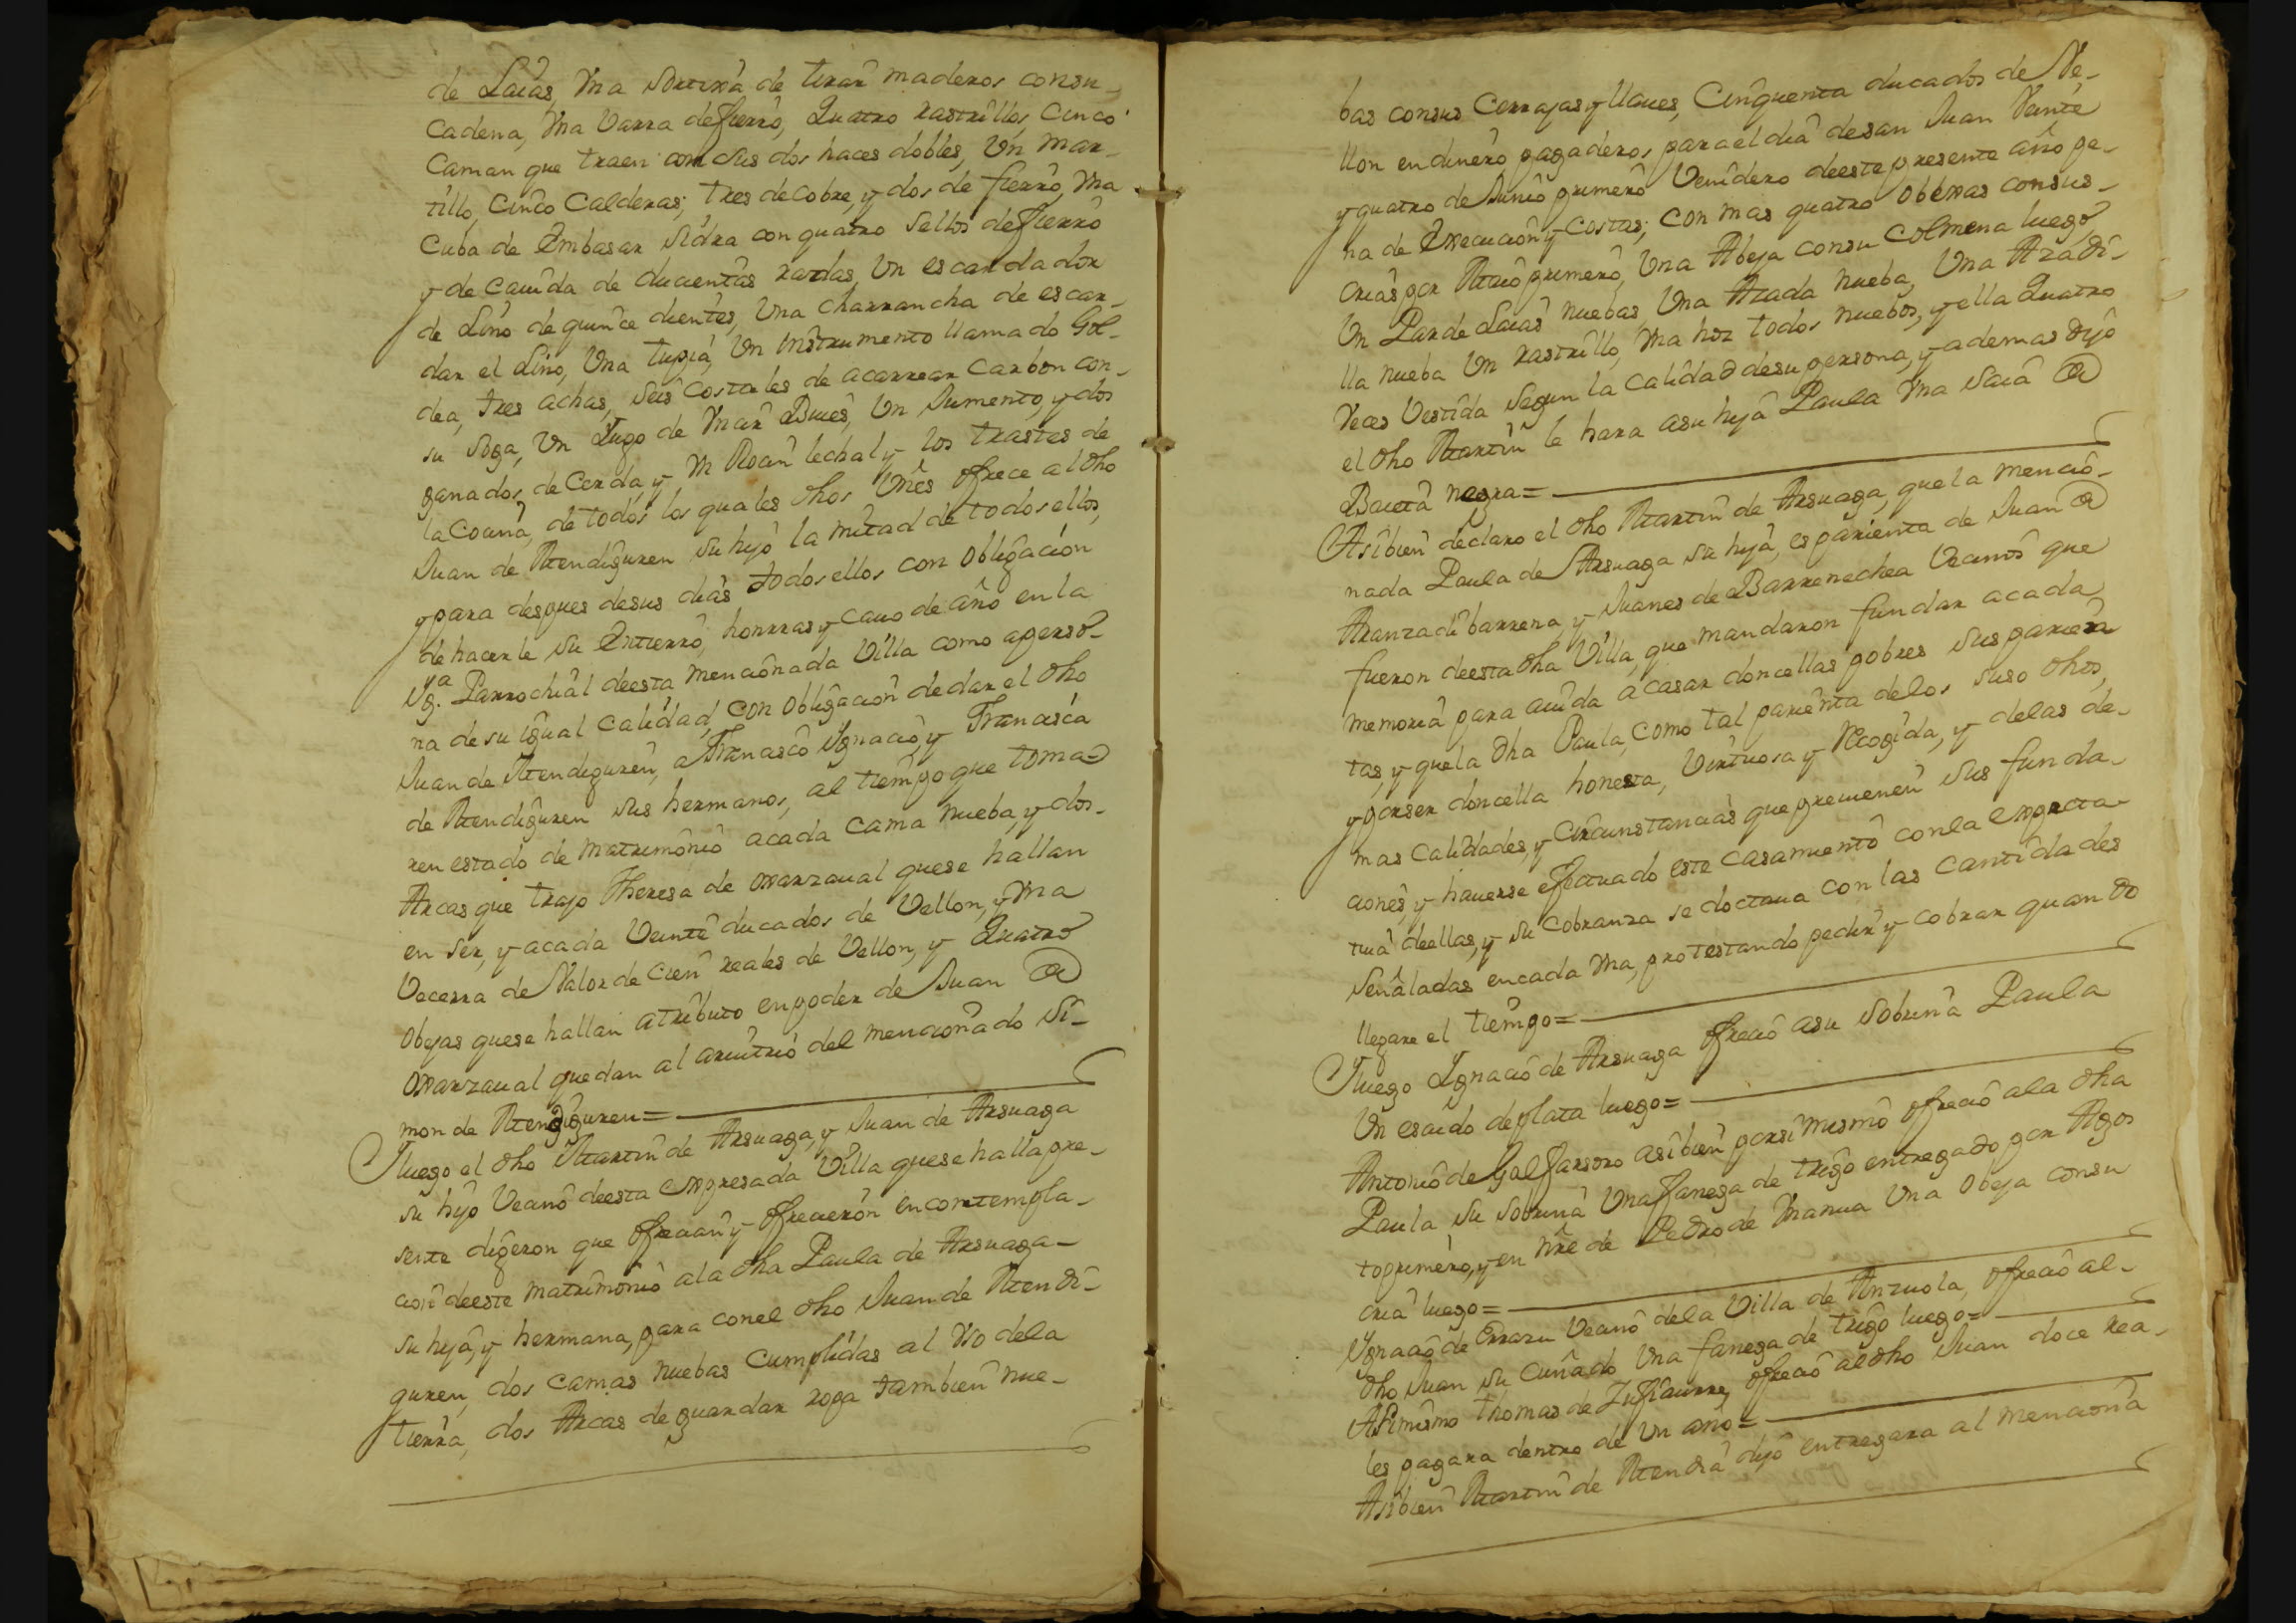 de Laias, Vna sortixa de tirar maderos consu-
Cadena, Vna Varra defierro, Quatro rastrillos, Cinco
Caman que traen con sus dos haces dobles, Vn mar-
tillo, Cinco Calderas; tres de cobre, y dos de fierro, Vna
Cuba de Embasar sidra con quatro sellos defierro
y de Cauida de ducientas Kardas, Vn escardador
de Lino de quince dientes, Una charrancha de escar-
dar el Lino, Una tupia, Vn Instrumento llamado Gol-
dea, tres achas, seis costales de acarrear Carbon con-
su soga, Vn Iugo de Vnar Buies, Vn Iumento, y dos
ganados de Cerda, y Vn Rocin lechal y los trastes de
la Cocina, de todos los quales dhos Vnes ofrece al dho
Iuan de Mendiguren su hijo la mitad de todos ellos,
y para despues desus dias todos ellos con obligacion
de hacerle su Entierro, honrras y Cauo de año en la
Yga. Parrochial deesta mencionada Villa como aperso-
na de su igual calidad, con obligacion de dar el dho
Iuan de Mendiguren, a Francisco Ignacio, y Francisca
de Mendiguren sus hermanos, al tiempo que toma-
ren estado de matrimonio acada cama nueba, y dos-
Arcas que trajo Theresa de orranzaual quese hallan
en ser, y acada Veinte ducados de Vellon, y Vna
Vecerra de Valor de Cien reales de Vellon, y Quatro
obejas quese hallan atributo en poder de Iuan
orranzaual quedan al aruitrio del mencionado Si-
mon de Mendiguren=
Yluego el dho Martin de Arsuaga, y Iuan de Arsuaga
su hijo Vecino deesta expresada Villa quese halla pre-
sente digeron que ofrecian y ofrecieron en contempla-
cion deeste matrimonio ala dha Paula de Arsuaga-
su hija, y hermana, para conel dho Iuan de Mendi-
guren, dos camas nuebas cumplidas al Vso dela
tierra, dos Arcas de guardar ropa tambien nue-
bas consus Cerrajas y llaues, Cinquenta ducados de Ve-
llon en dinero pagaderos para el dia desan Iuan Veinte
y quatro de Iunio primero Venidero deeste presente año pe-
na de Execucion y Costas; con mas quatro obejas consus-
crias por Maio primero, Una Abeja consu Colmena luego,
Un Par de Laias nuebas, Una Azada nueba, Una Azadi-
lla nueba Un rastrillo, Vna hoz todos nuebos, y ella Quatro
Veces Vestida segun la Calidad desu persona, y ademas dijo
el dho Martin le hara asu hija Paula Vna Saia
Baieta negra=
Asibien declaro el dho Martin de Arsuaga, quela mencio-
nada Paula de Arsuaga su hija, es parienta de Iuan
Aranzadibarrena, y Iuanes de Barrenechea Vecinos que
fueron deesta dha Villa, que mandaron fundar acada
memoria para auida a casar doncellas pobres sus parien
tas, y quela dha Paula, como tal parienta delos suso dhos,
y porser doncella honesta, Virtuosa y Recogida, y delas de-
mas Calidades, y Circunstancias que preuienen sus funda-
ciones, y hauerse efectuado este Casamiento conla expecta-
tiua deellas, y su Cobranza se doctaua con las cantidades
señaladas encada Vna, protestando pedir y cobrar quando
llegare el tiempo=
Yluego Ygnacio de Arsuaga ofrecio asu sobrina Paula
Vn escudo de plata luego=
Antonio de Galfarsoro asibien porsi mismo ofrecio ala dha
Paula su sobrina Una fanega de trigo entregado por Agos
to primero, y en Nre de Pedro de Manua Una obeja consu
cria luego=
Ygnacio de Errazu Vecino dela Villa de Anzuola, ofrecio al-
dho Iuan su Cuñado Una fanega de trigo luego=
Asimismo thomas de Zufiaurre, ofrecio aldho Iuan doce rea-
les pagara dentro de Un año=
Asibien Martin de Mendia dijo entregara al menciona